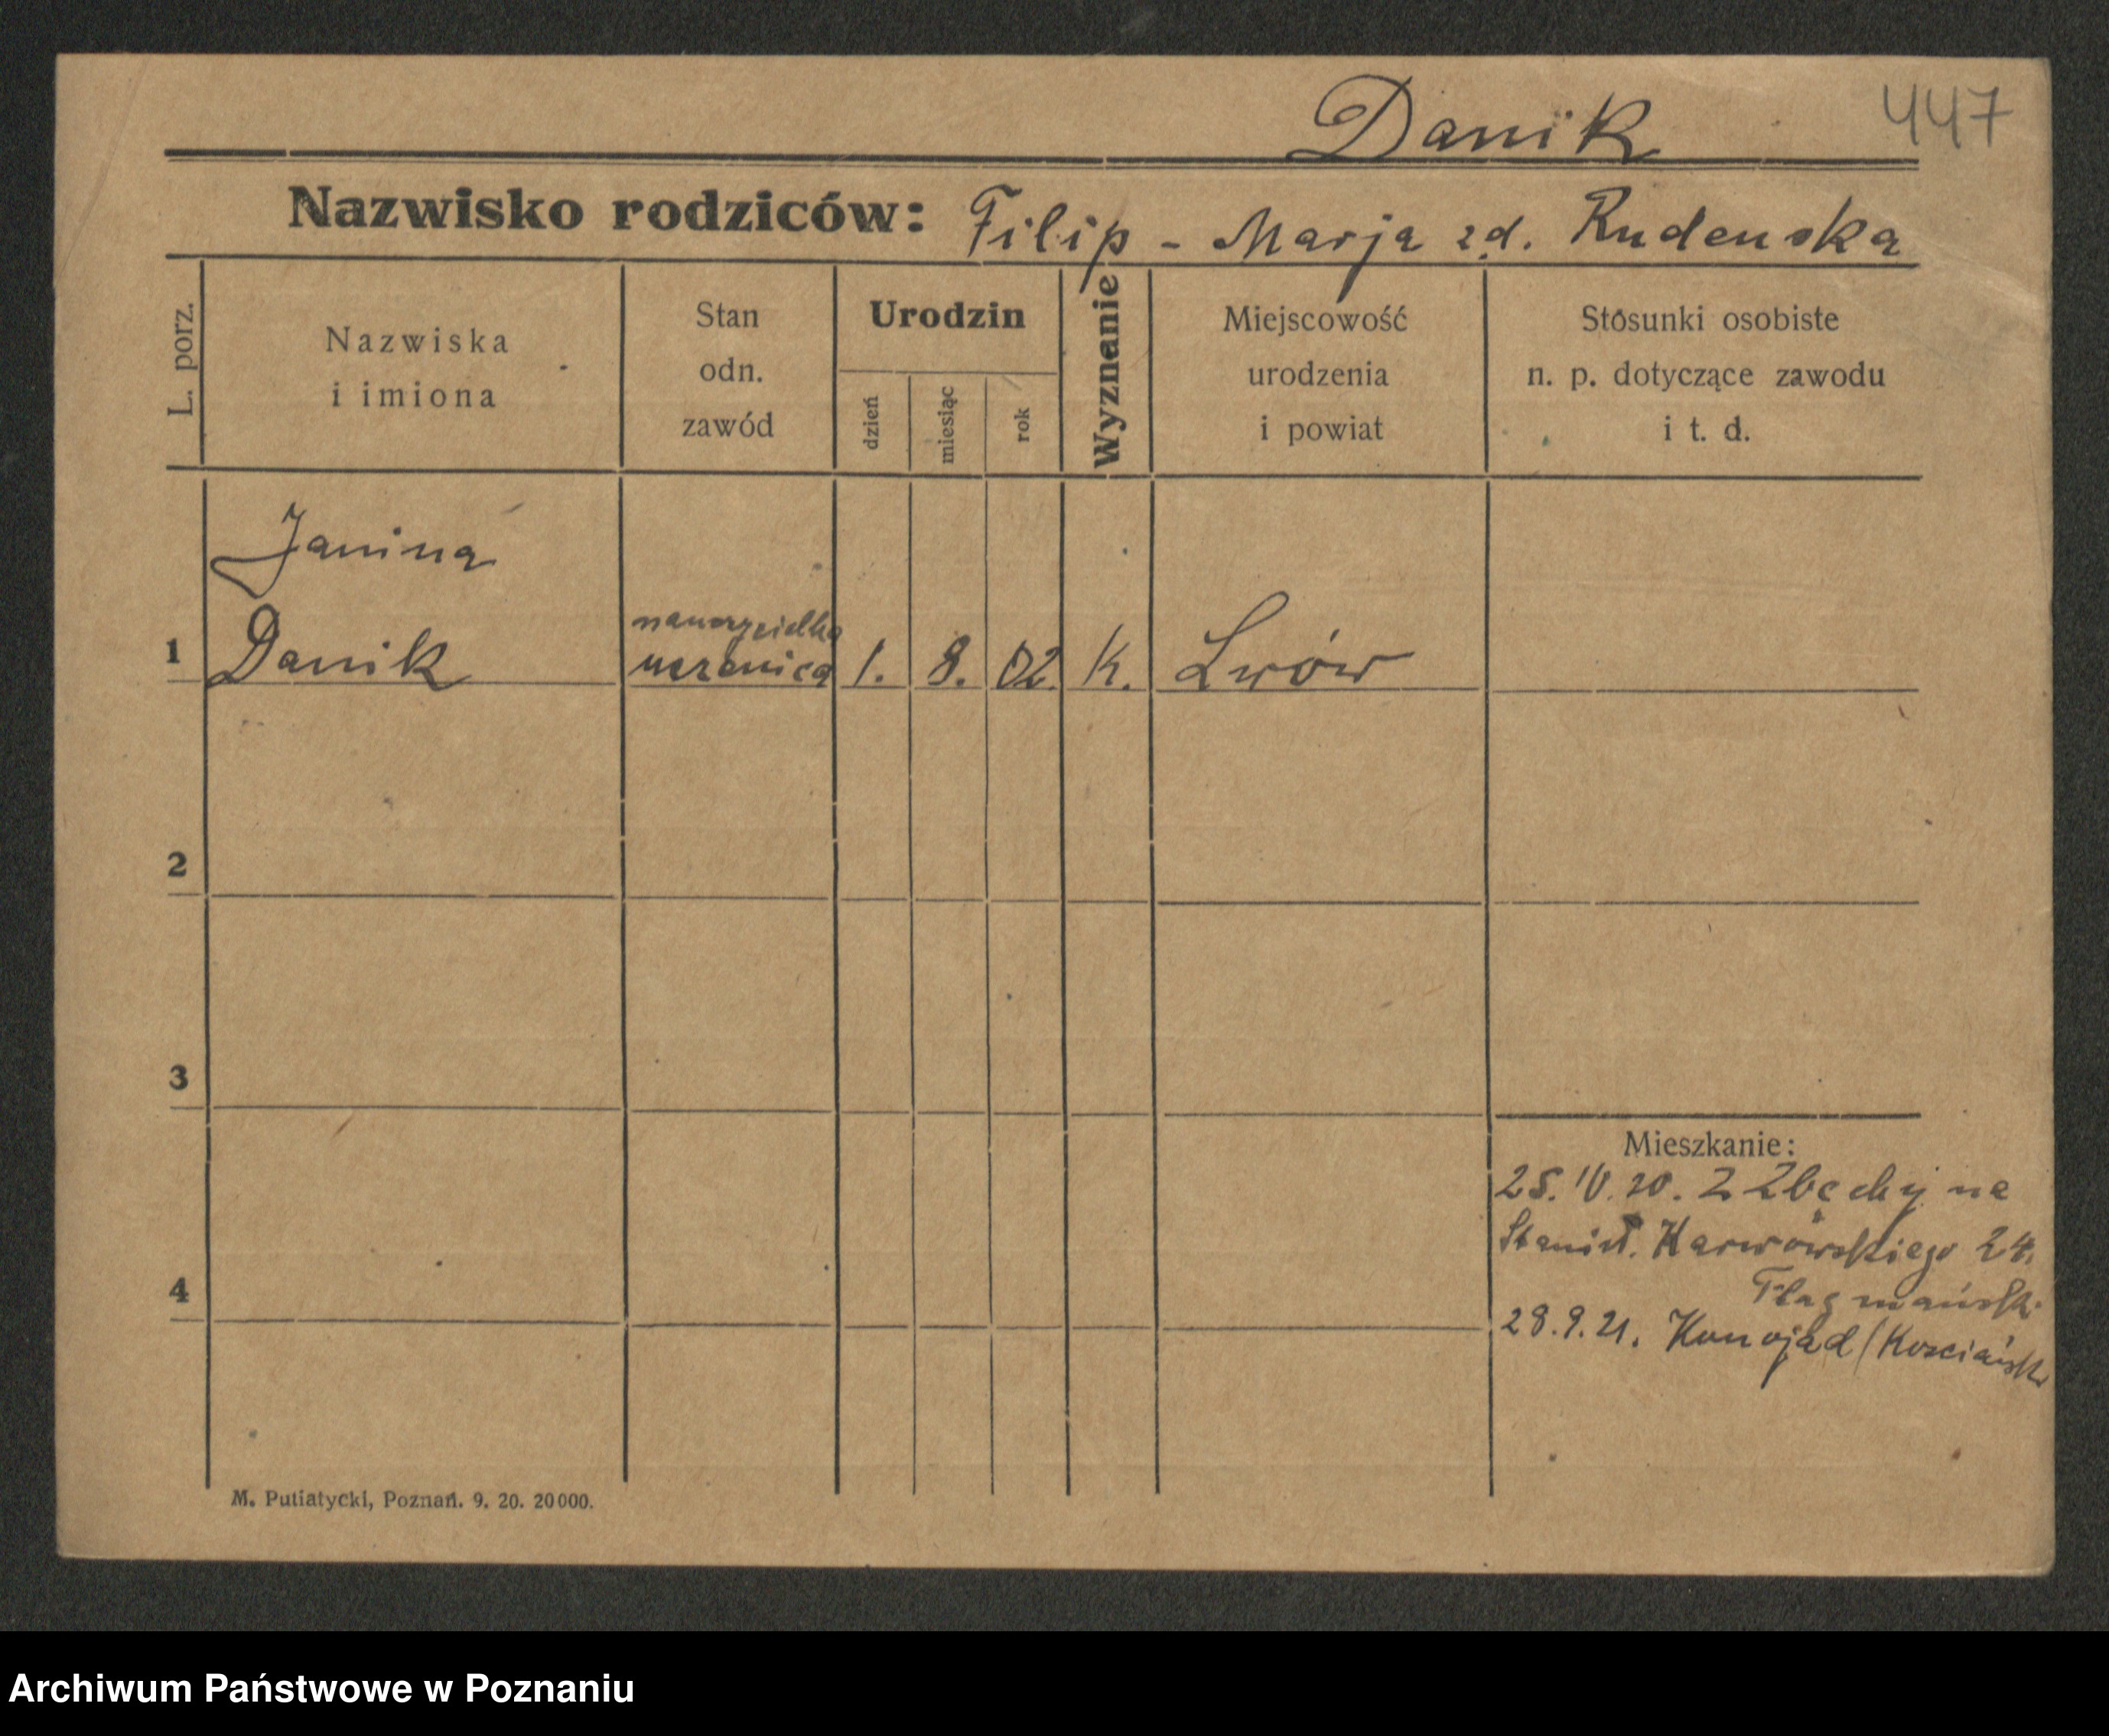 Danik 447
Nazwisko rodziców: Filip - Marja zd. Rudenska
L. porz.
Nazwiska
i imiona
Stan
odn.
zawód
Urodzin
dzień
miesiąc
rok
Wyznanie
Miejscowość
urodzenia
i powiat
Stosunki osobiste
n. p. dotyczące zawodu
i t. d.
Janina
nauczycielka
1 Danik uczenica 1. 8. 02. K. Lwów
2
3
Mieszkanie:
25. IV. 20. Z Zbęchy na
Stanisł. Karwowskiego 24.
4
28.9.21. Konojad (Kościańsk
M. Putiatycki, Poznań. 9. 20. 20000.
Archiwum Państwowe w Poznaniu